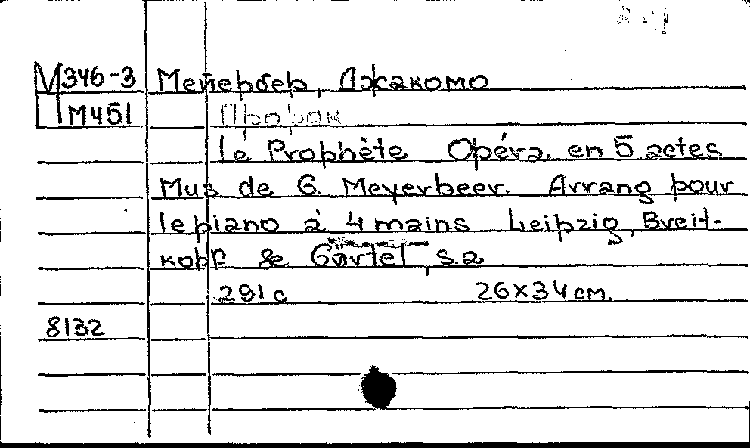 М346-3 Мейербер, Джакомо
ПМ451 Пророк
le Prophète Opéra. en 5 actes
Mus de G. Meyerbeer. Arrang pour
le piano à 4 mains Leipzig, Breit-
kopf & Gärtel, s.a
291 с 26x34 см.
8132